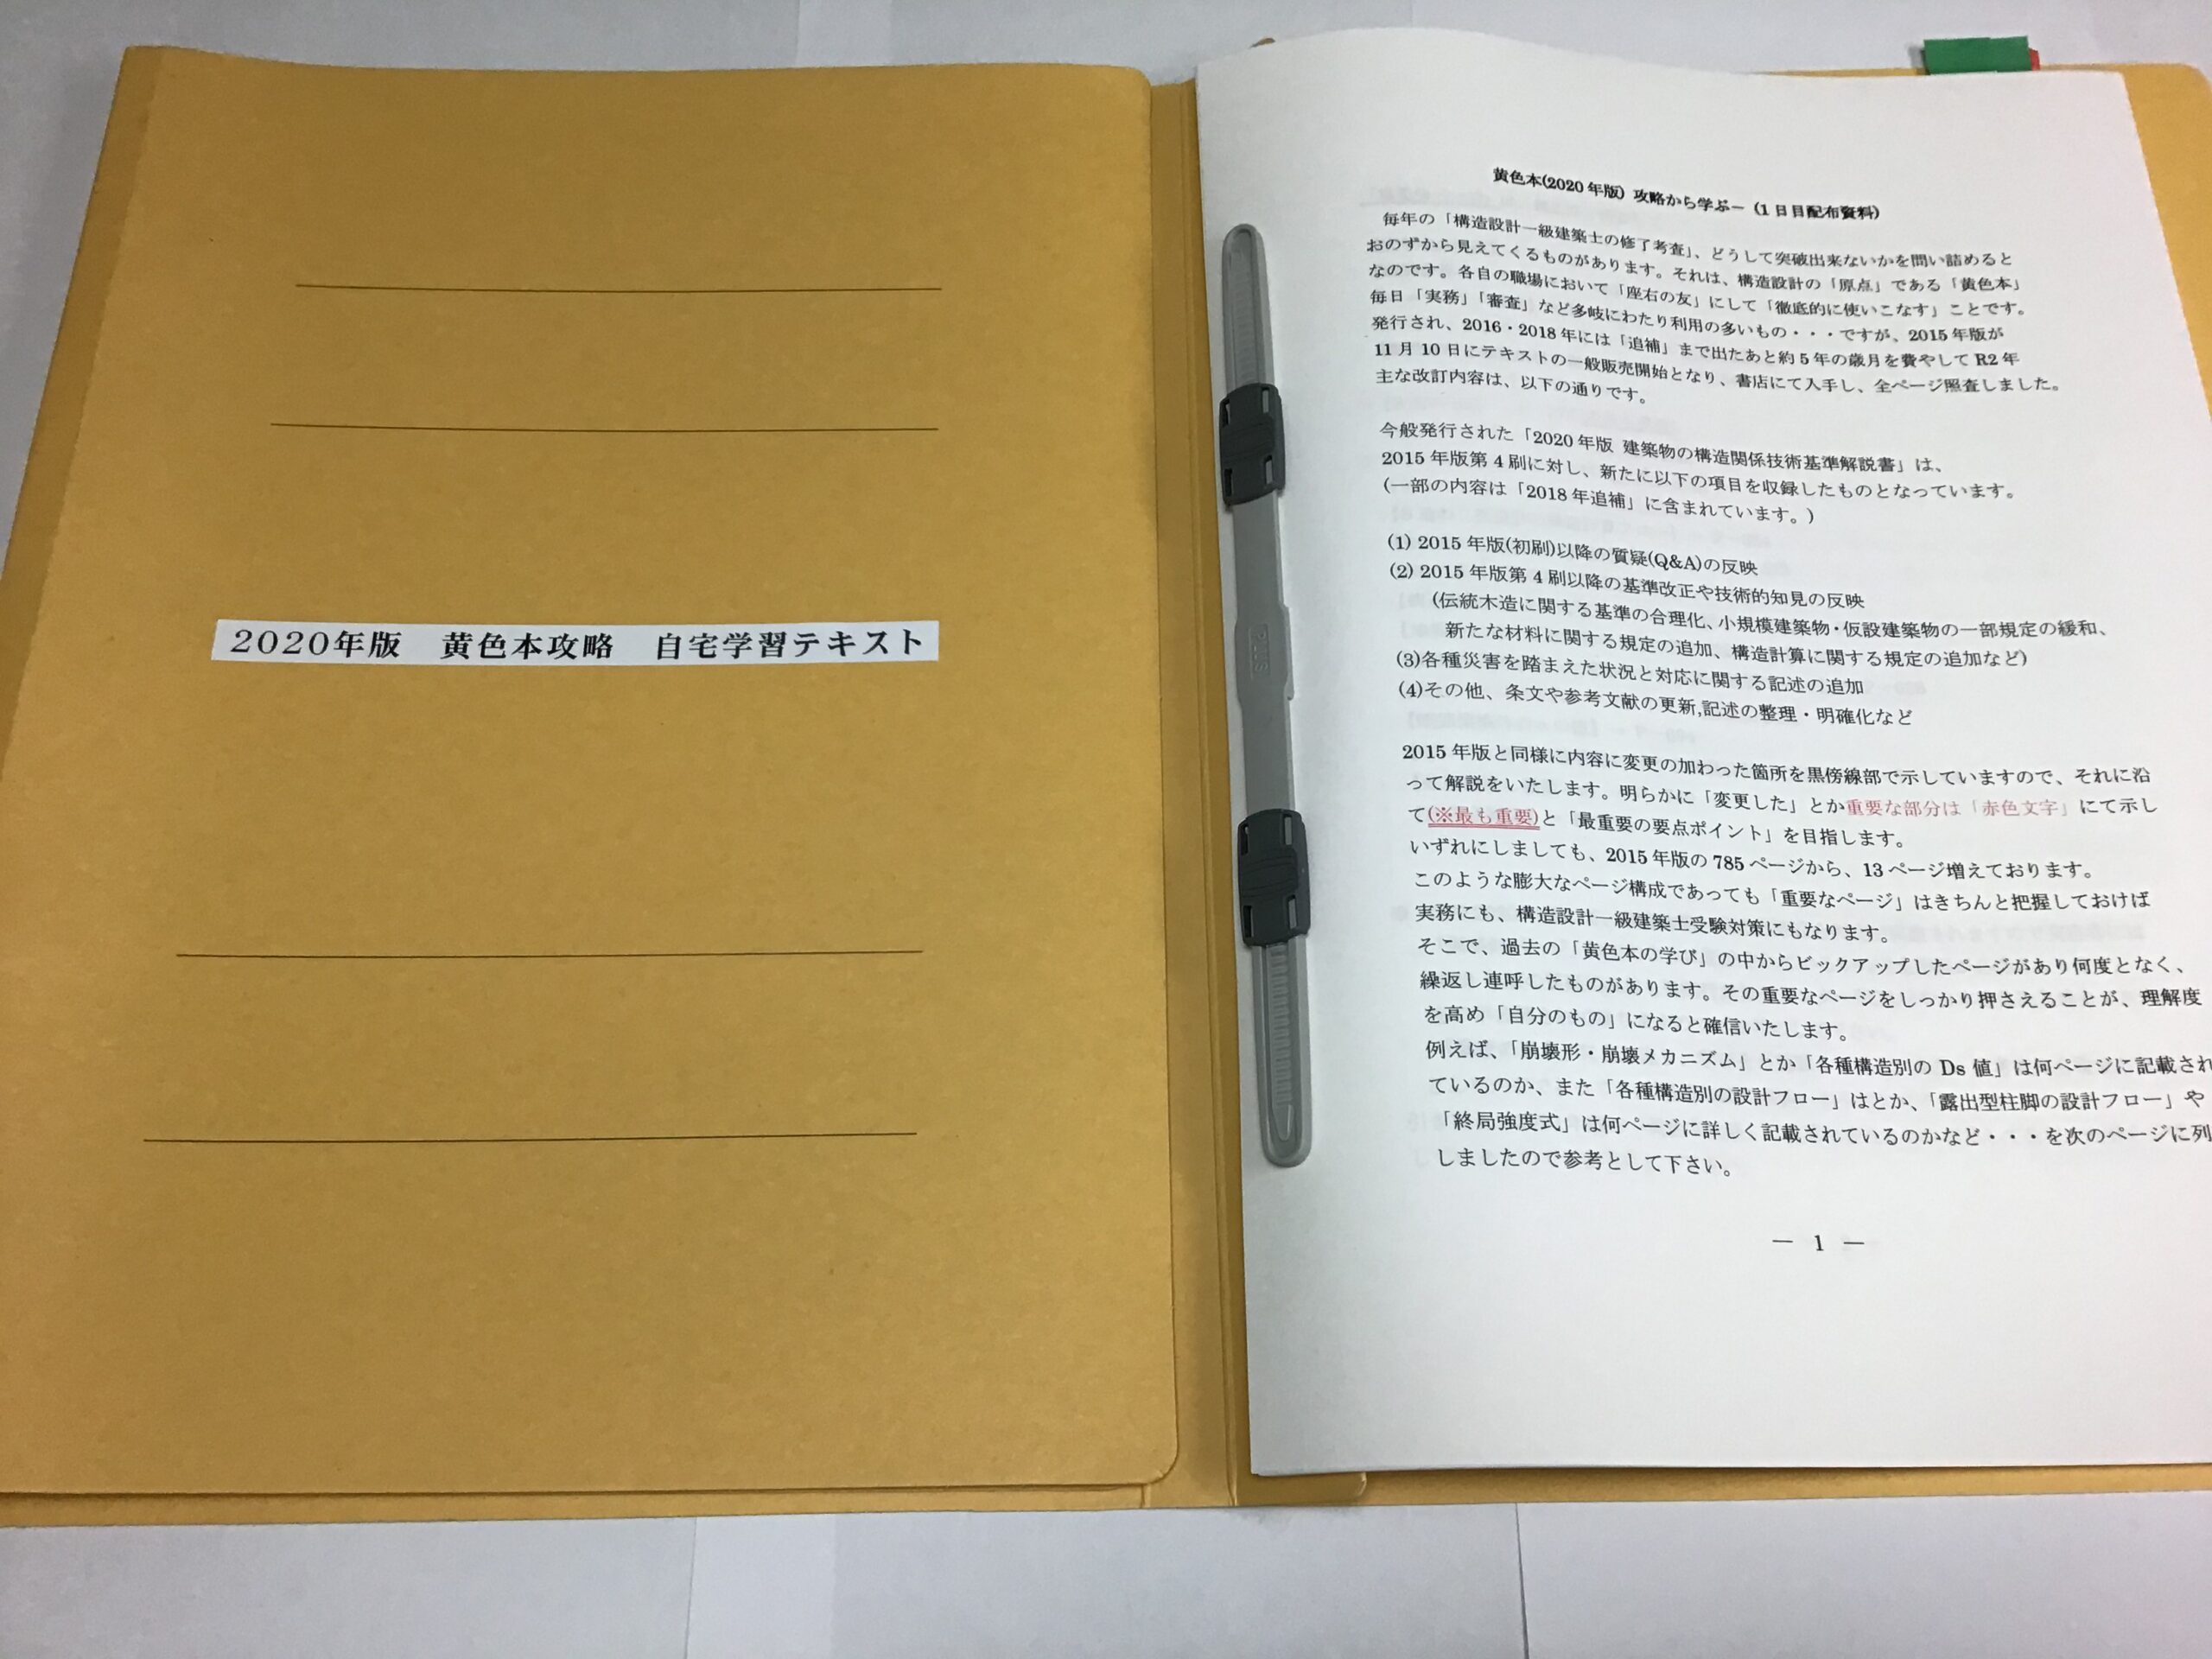 2020年版　黄色本攻略　自宅学習テキスト
PLUS
黄色本(2020年版) 攻略から学ぶ－（1日目配布資料）
毎年の「構造設計一級建築士の修了考査」、どうして突破出来ないかを問い詰めると
おのずから見えてくるものがあります。それは、構造設計の「原点」である「黄色本」
なのです。各自の職場において「座右の友」にして「徹底的に使いこなす」ことです。
毎日「実務」「審査」など多岐にわたり利用の多いもの・・・ですが、2015年版が
発行され、2016・2018年には「追補」まで出たあと約5年の歳月を費やしてR2年
11月10日にテキストの一般販売開始となり、書店にて入手し、全ページ照査しました。
主な改訂内容は、以下の通りです。
今般発行された「2020年版 建築物の構造関係技術基準解説書」は、
2015年版第4刷に対し、新たに以下の項目を収録したものとなっています。
(一部の内容は「2018年追補」に含まれています。)
(1) 2015年版(初刷)以降の質疑(Q&A)の反映
(2) 2015年版第4刷以降の基準改正や技術的知見の反映
(伝統木造に関する基準の合理化、小規模建築物・仮設建築物の一部規定の緩和、
新たな材料に関する規定の追加、構造計算に関する規定の追加など)
(3)各種災害を踏まえた状況と対応に関する記述の追加
(4)その他、条文や参考文献の更新,記述の整理・明確化など
2015年版と同様に内容に変更の加わった箇所を黒傍線部で示していますので、それに沿
って解説をいたします。明らかに「変更した」とか重要な部分は「赤色文字」にて示し
て(※最も重要)と「最重要の要点ポイント」を目指します。
いずれにしましても、2015年版の785ページから、13ページ増えております。
このような膨大なページ構成であっても「重要なページ」はきちんと把握しておけば
実務にも、構造設計一級建築士受験対策にもなります。
そこで、過去の「黄色本の学び」の中からピックアップしたページがあり何度となく、
繰返し連呼したものがあります。その重要なページをしっかり押さえることが、理解度
を高め「自分のもの」になると確信いたします。
例えば、「崩壊形・崩壊メカニズム」とか「各種構造別の Ds 値」は何ページに記載され
ているのか、また「各種構造別の設計フロー」はとか、「露出型柱脚の設計フロー」や
「終局強度式」は何ページに詳しく記載されているのかなど・・・を次のページに列
しましたので参考として下さい。
－ 1 －